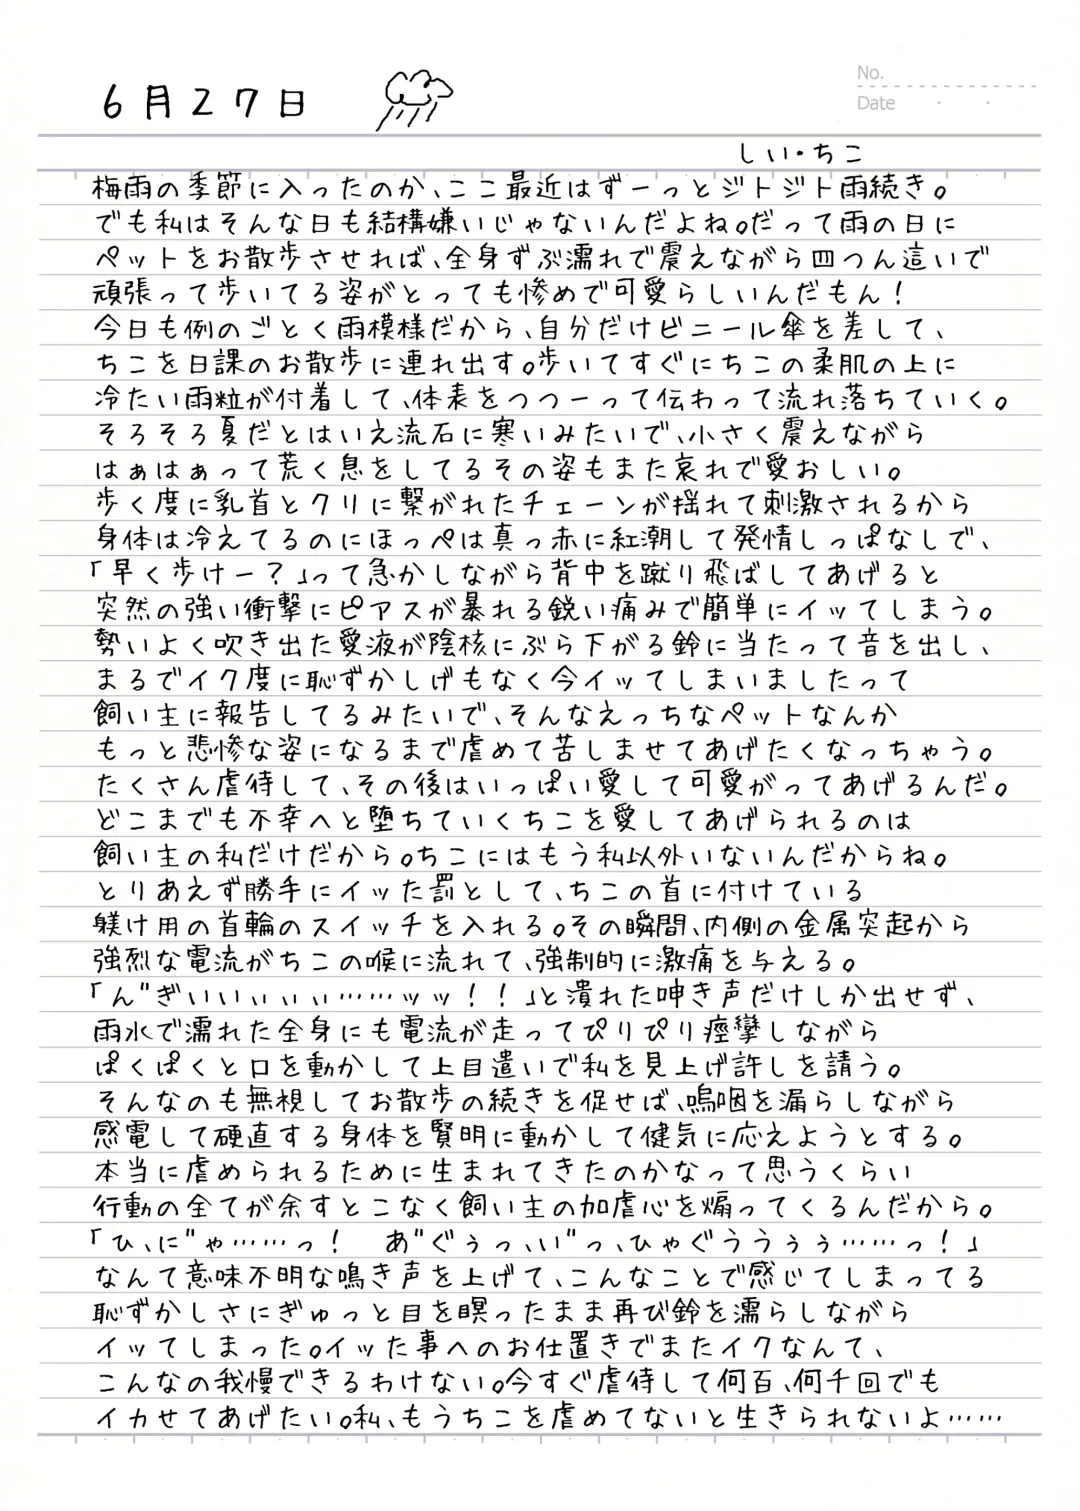 No.
6月27日
Date
しい・ちこ
梅雨の季節に入ったのか、ここ最近はずーっとジトジト雨続き。
でも私はそんな日も結構嫌いじゃないんだよね。だって雨の日に
ペットをお散歩させれば、全身ずぶ濡れで震えながら四つん這いで
頑張って歩いてる姿がとっても惨めで可愛らしいんだもん！
今日も例のごとく雨模様だから、自分だけビニール傘を差して、
ちこを日課のお散歩に連れ出す。歩いてすぐにちこの柔肌の上に
冷たい雨粒が付着して、体表をつつーって伝わって流れ落ちていく。
そろそろ夏だとはいえ流石に寒いみたいで、小さく震えながら
はぁはぁって荒く息をしてるその姿もまた哀れで愛おしい。
歩く度に乳首とクリに繋がれたチェーンが揺れて刺激されるから
身体は冷えてるのにほっぺは真っ赤に紅潮して発情しっぱなしで、
「早く歩けー？」って急かしながら背中を蹴り飛ばしてあげると
突然の強い衝撃にピアスが暴れる鋭い痛みで簡単にイッてしまう。
勢いよく吹き出た愛液が陰核にぶら下がる鈴に当たって音を出し、
まるでイク度に恥ずかしげもなく今イッてしまいましたって
飼い主に報告してるみたいで、そんなえっちなペットなんか
もっと悲惨な姿になるまで虐めて苦しませてあげたくなっちゃう。
たくさん虐待して、その後はいっぱい愛して可愛がってあげるんだ。
どこまでも不幸へと堕ちていくちこを愛してあげられるのは
飼い主の私だけだから。ちこにはもう私以外いないんだからね。
とりあえず勝手にイッた罰として、ちこの首に付けている
躾け用の首輪のスイッチを入れる。その瞬間、内側の金属突起から
強烈な電流がちこの喉に流れて、強制的に激痛を与える。
「ん゛ぎいいいぃぃぃ……ッッ！！」と潰れた呻き声だけしか出せず、
雨水で濡れた全身にも電流が走ってぴりぴり痙攣しながら
ぱくぱくと口を動かして上目遣いで私を見上げ許しを請う。
そんなのも無視してお散歩の続きを促せば、嗚咽を漏らしながら
感電して硬直する身体を賢明に動かして健気に応えようとする。
本当に虐められるために生まれてきたのかなって思うくらい
行動の全てが余すとこなく飼い主の加虐心を煽ってくるんだから。
「ひ、に゛ゃ……っ！　あ゛ぐぅっ、い゛っ、ひゃぐううぅぅ……っ！」
なんて意味不明な鳴き声を上げて、こんなことで感じてしまってる
恥ずかしさにぎゅっと目を瞑ったまま再び鈴を濡らしながら
イッてしまった。イッた事へのお仕置きでまたイクなんて、
こんなの我慢できるわけない。今すぐ虐待して何百、何千回でも
イカせてあげたい。私、もうちこを虐めてないと生きられないよ……